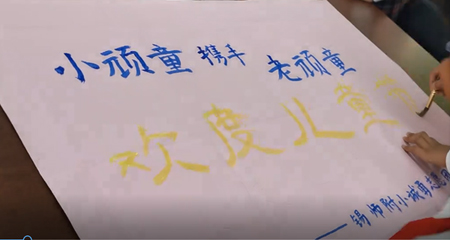 小顽童 携手 老顽童
欢度儿童
——锡师附小城南